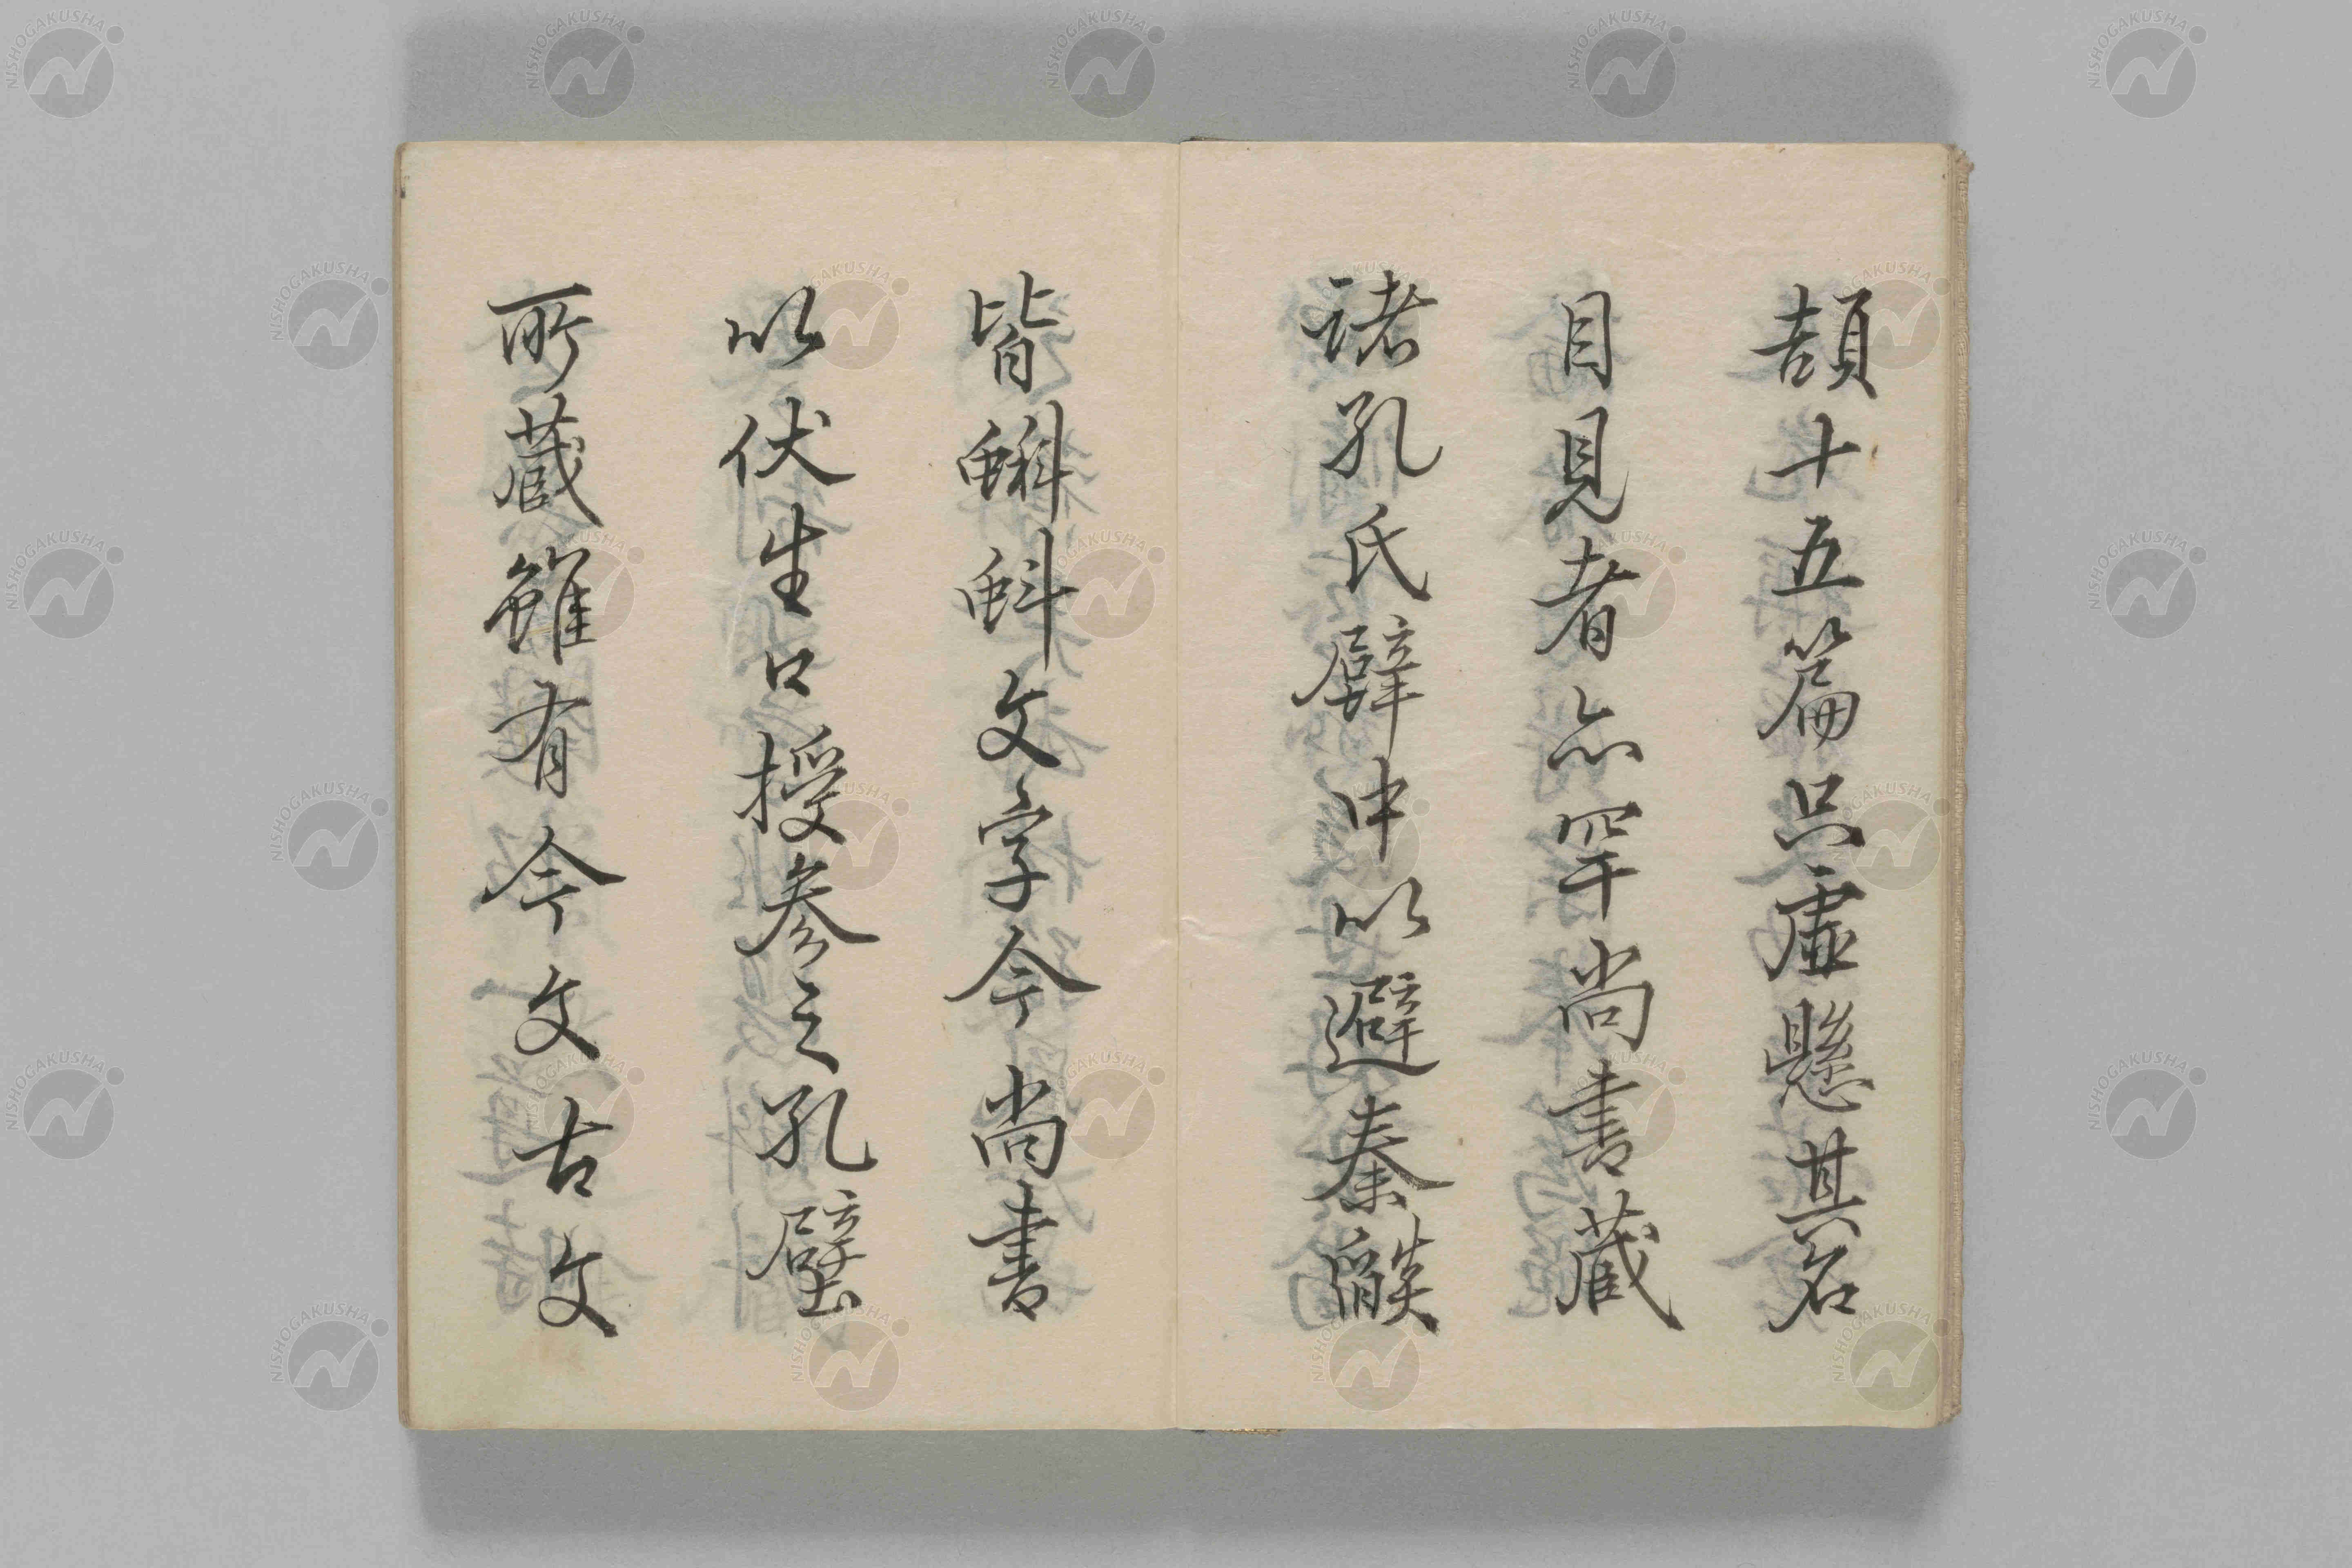 頡十五篇只虚懸其名
目見者亦罕尚書藏
諸孔氏壁中以避秦燄
皆蝌蚪文字今尚書
以伏生口授参之孔壁
所藏雖有今文古文